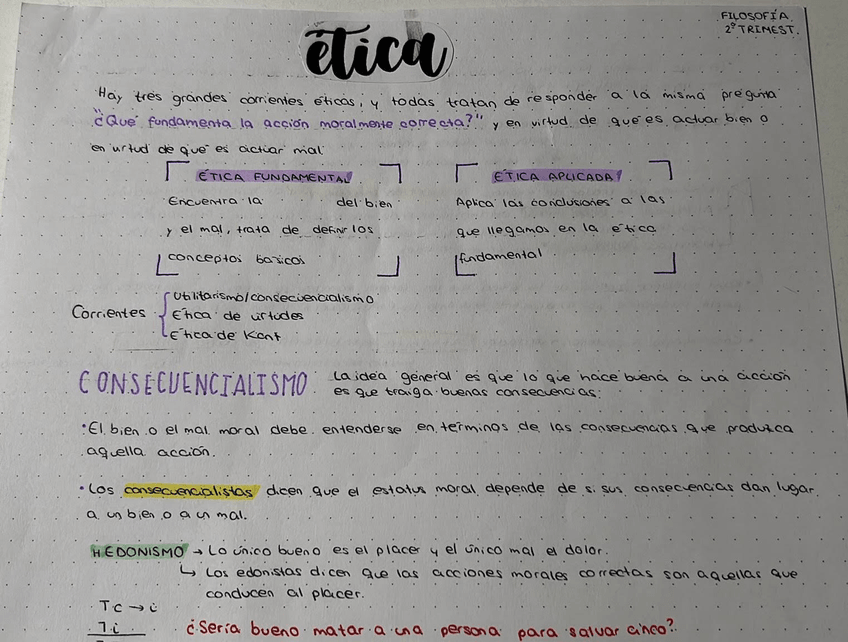 FILOSOFÍA
2º TRIMEST.
ética
Hay tres grandes corrientes éticas, y todas tratan de responder a la misma pregunta
"¿Qué fundamenta la acción moralmente correcta?" y en virtud de qué es actuar bien o
en virtud de qué es actuar mal.
ÉTICA FUNDAMENTAL
Encuentra la del bien
y el mal, trata de definir los
conceptos basicos
ÉTICA APLICADA
Aplica las conclusiones a las
que llegamos en la ética
fundamental
Corrientes
Utilitarismo/consecuencialismo
Ética de virtudes
Ética de Kant
CONSECUENCIALISMO
La idea general es que lo que hace buena a una acción
es que traiga buenas consecuencias.
• El bien o el mal moral debe entenderse en terminos de las consecuencias que produzca
aquella acción.
• Los consecuencialistas dicen que el estatus moral depende de si sus consecuencias dan lugar
a un bien o a un mal.
HEDONISMO → Lo único bueno es el placer y el único mal el dolor.
↳ Los edonistas dicen que las acciones morales correctas son aquellas que
conducen al placer.
Tc → i
¬i
¿Sería bueno matar a una persona para salvar cinco?